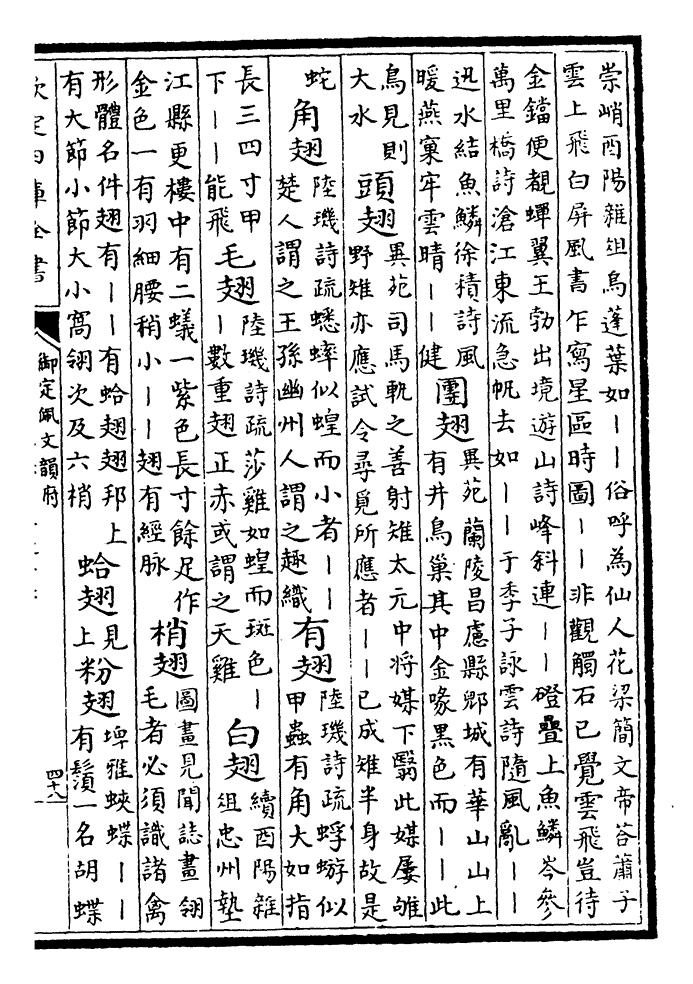 崇峭酉陽雜俎烏蓬葉如||俗呼為仙人花梁簡文帝荅蕭子
雲上飛白屏風書乍寫星區時圖||非觀觸石已覺雲飛豈待
金鐺便覩蟬翼王勃出境遊山詩峰斜連||磴疊上魚鱗岑參
萬里橋詩滄江東流急帆去如||于季子詠雲詩隨風亂||
迅水結魚鱗徐積詩風
暖燕窠牢雲晴||健
團翅
異苑蘭陵昌慮縣郳城有華山山上
有井鳥巢其中金喙黑色而||此
鳥見則
大水
頭翅
異苑司馬軌之善射雉太元中將媒下翳此媒屢雊
野雉亦應試令尋覓所應者||已成雉半身故是
蛇
角翅
陸璣詩疏蟋蟀似蝗而小者||
楚人謂之王孫幽州人謂之趣織
有翅
陸璣詩疏蜉蝣似
甲蟲有角大如指
長三四寸甲
下||能飛
毛翅
陸璣詩疏莎雞如蝗而斑色|
|數重翅正赤或謂之天雞
白翅
續酉陽雜
俎忠州墊
江縣更樓中有二蟻一紫色長寸餘足作
金色一有羽細腰稍小||翅有經脉
梢翅
圖畫見聞誌畫翎
毛者必須識諸禽
形體名件翅有||有蛤翅翅邦上
有大節小節大小窩翎次及六梢
蛤翅
見
上
粉翅
埤雅蛺蝶||
有鬚一名胡蝶
欽定四庫全書
御定佩文韻府
四十八